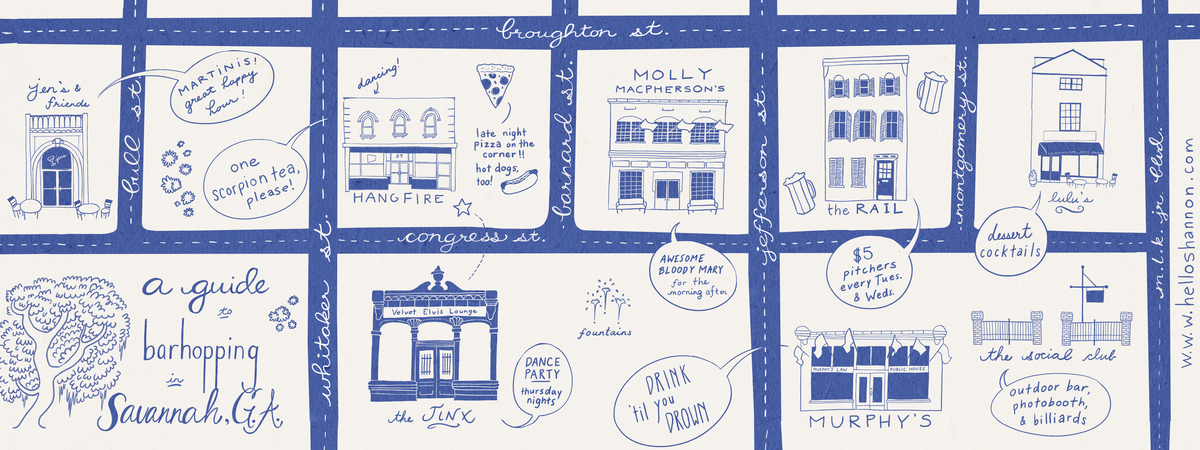 broughton st.
Jen's &
friends
MARTINIS!
great happy
hour!
bull st.
one
scorpion tea,
please!
dancing!
37
HANGFIRE
late night
pizza on the
corner!!
hot dogs,
too!
barnard st.
MOLLY
MACPHERSON'S
jefferson st.
the RAIL
montgomery st.
lulu's
m.l.k. jr. blvd.
www.helloshannon.com
congress st.
whitaker st.
AWESOME
BLOODY MARY
for the
morning after
$5
pitchers
every Tues.
& Weds.
dessert
cocktails
a guide
to
barhopping
in
Savannah, GA.
Velvet Elvis Lounge
the JINX
DANCE
PARTY
thursday
nights
fountains
DRINK
'til you
DROWN
MURPHY'S LAW
PUBLIC HOUSE
MURPHY'S
the social club
outdoor bar,
photobooth,
& billiards